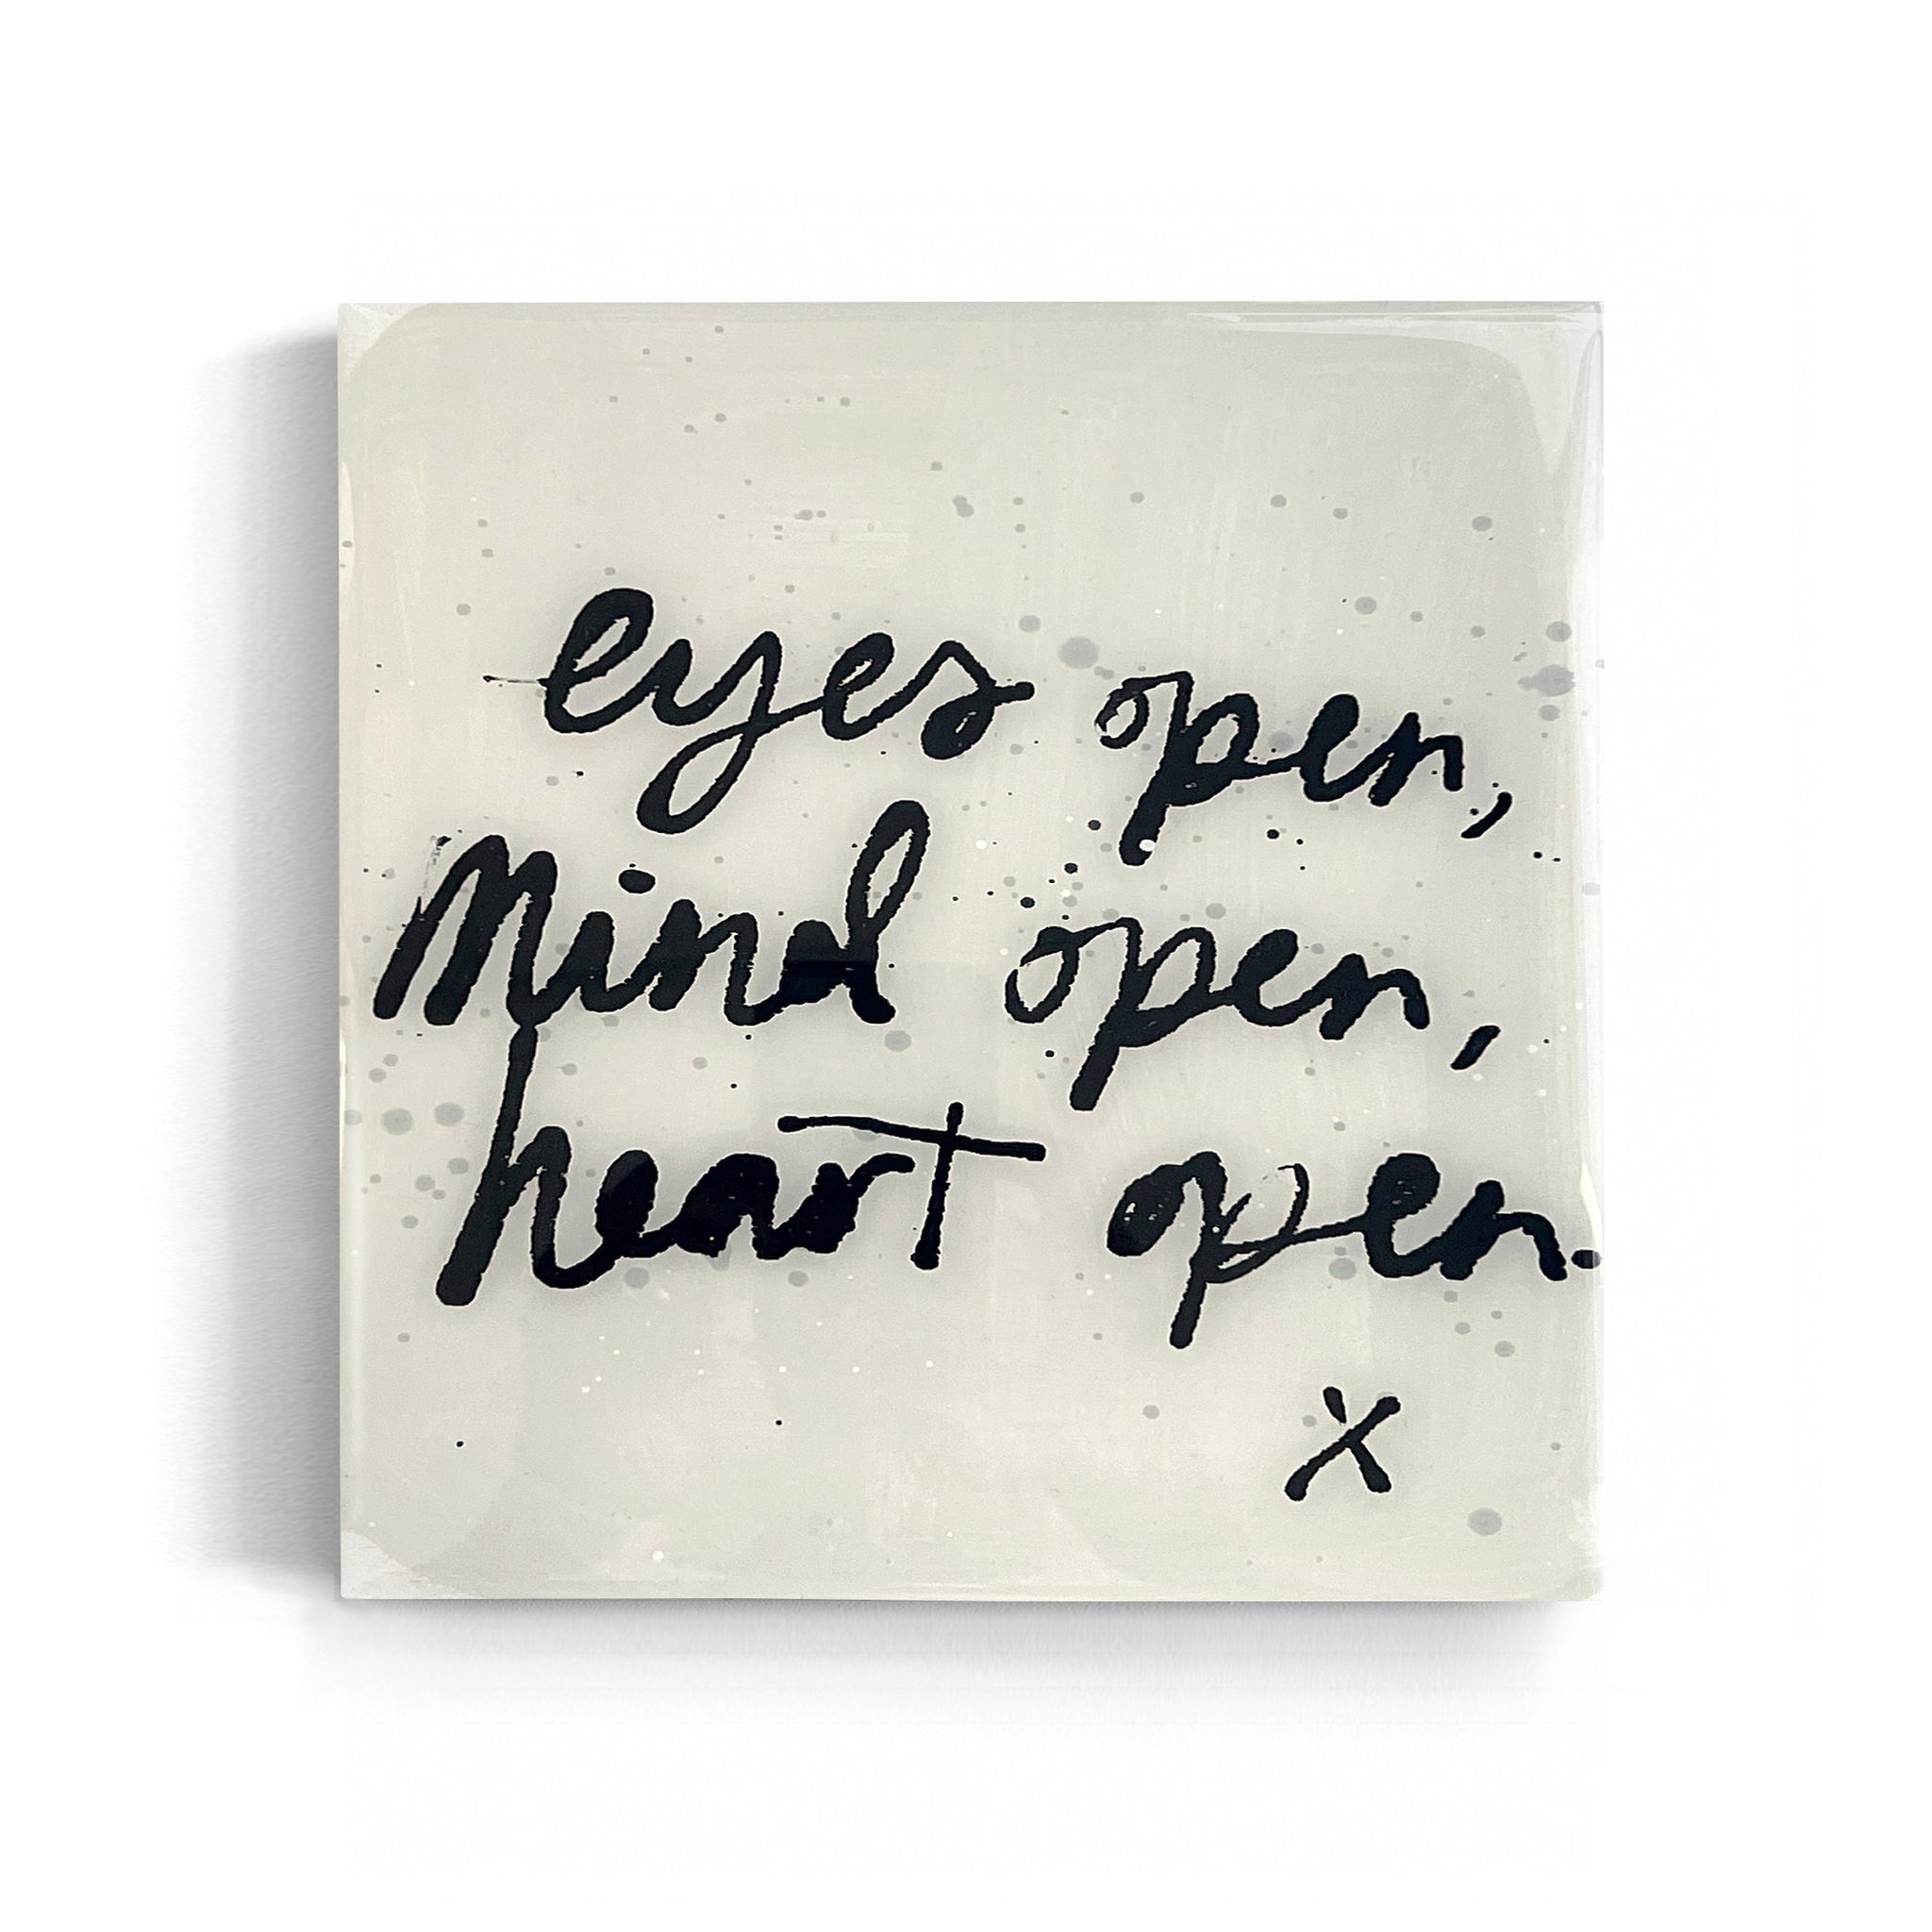 eyes open,
Mind open,
heart open.
x